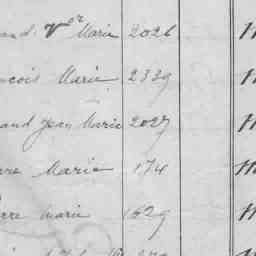 and Vve Marie 2026 M
ncois Marie 2339 M
and Jean Marie 2027 M
rre Marie 174 M
erre Marie 1629 M